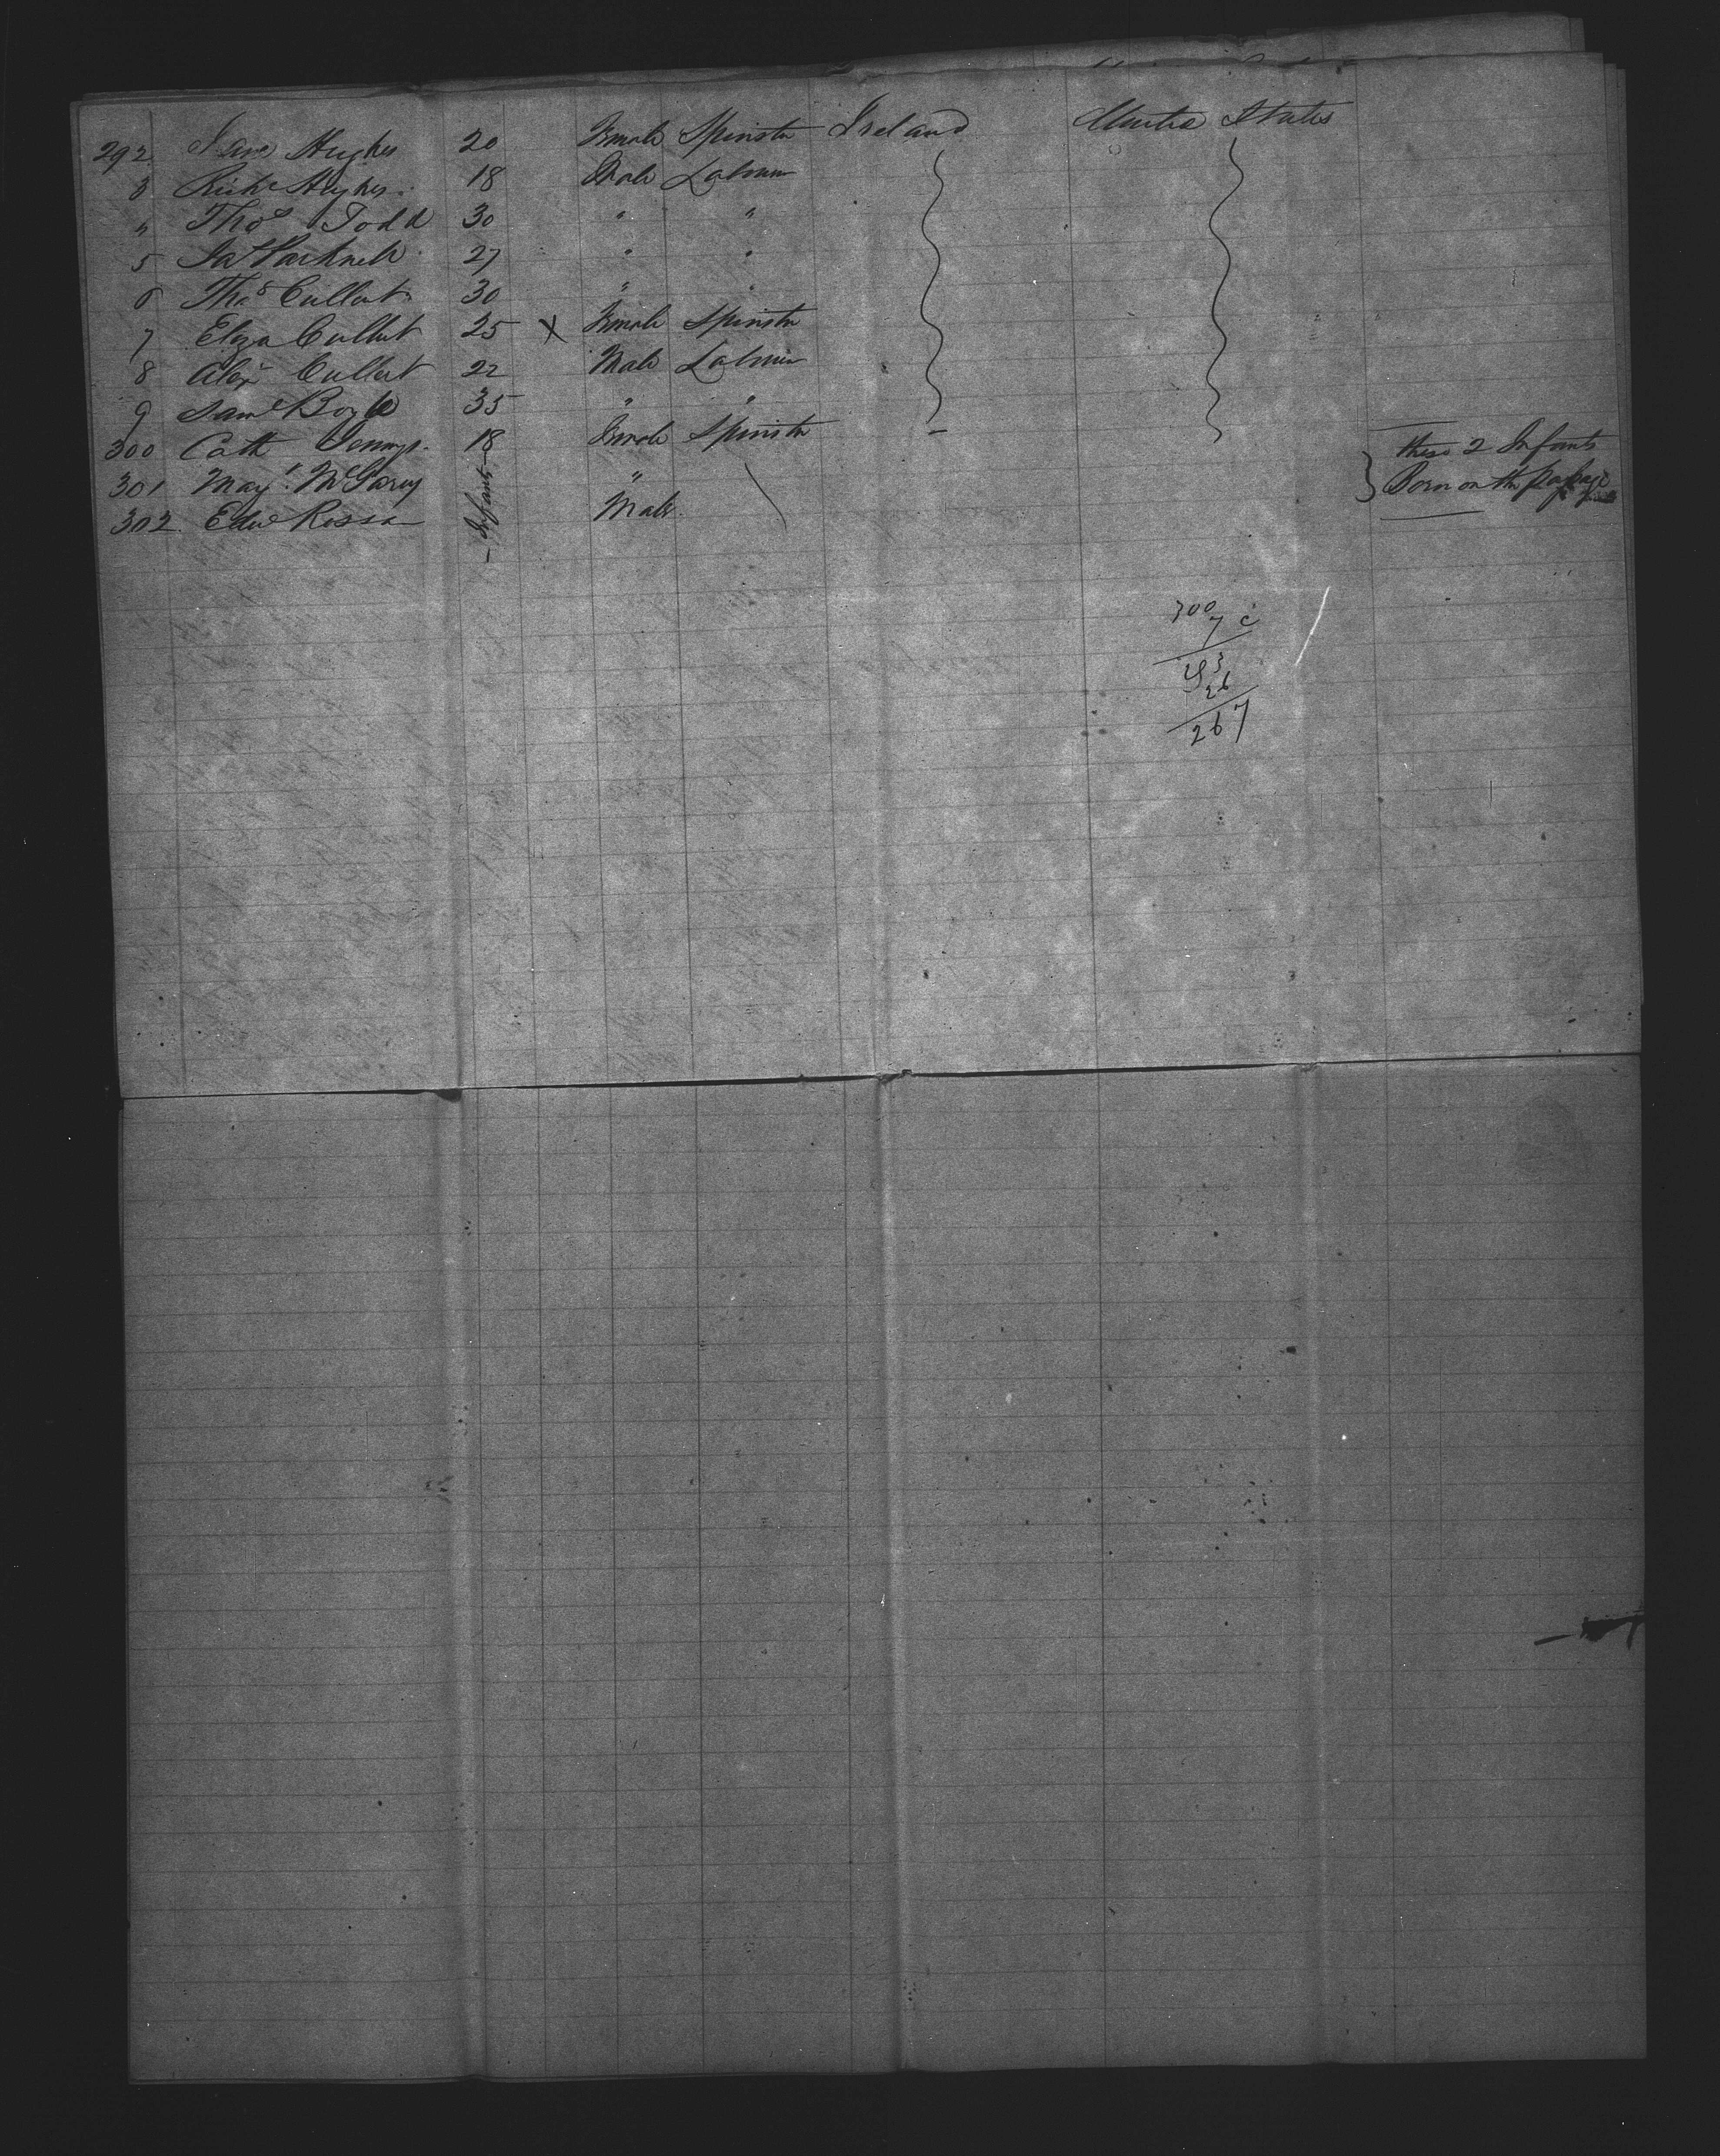 292 Jane Hughes 20 Female Spinster Ireland United States
3 Richd Hughes 18 Male Labourer
" Thos Todd 30 " "
5 Jas 27 " "
6 Thos Cullert 30 " "
7 Eliza Cullert 25 X Female Spinster
8 Alexr Cullert 22 Male Labourer
9 Saml Boyle 35 " "
300 Cath 18 Female Spinster
301 Mary McGarey Infants "
302 Edwd Rossa Male
} these 2 Infants
Born on the Passage
300
7 c
93
26
267